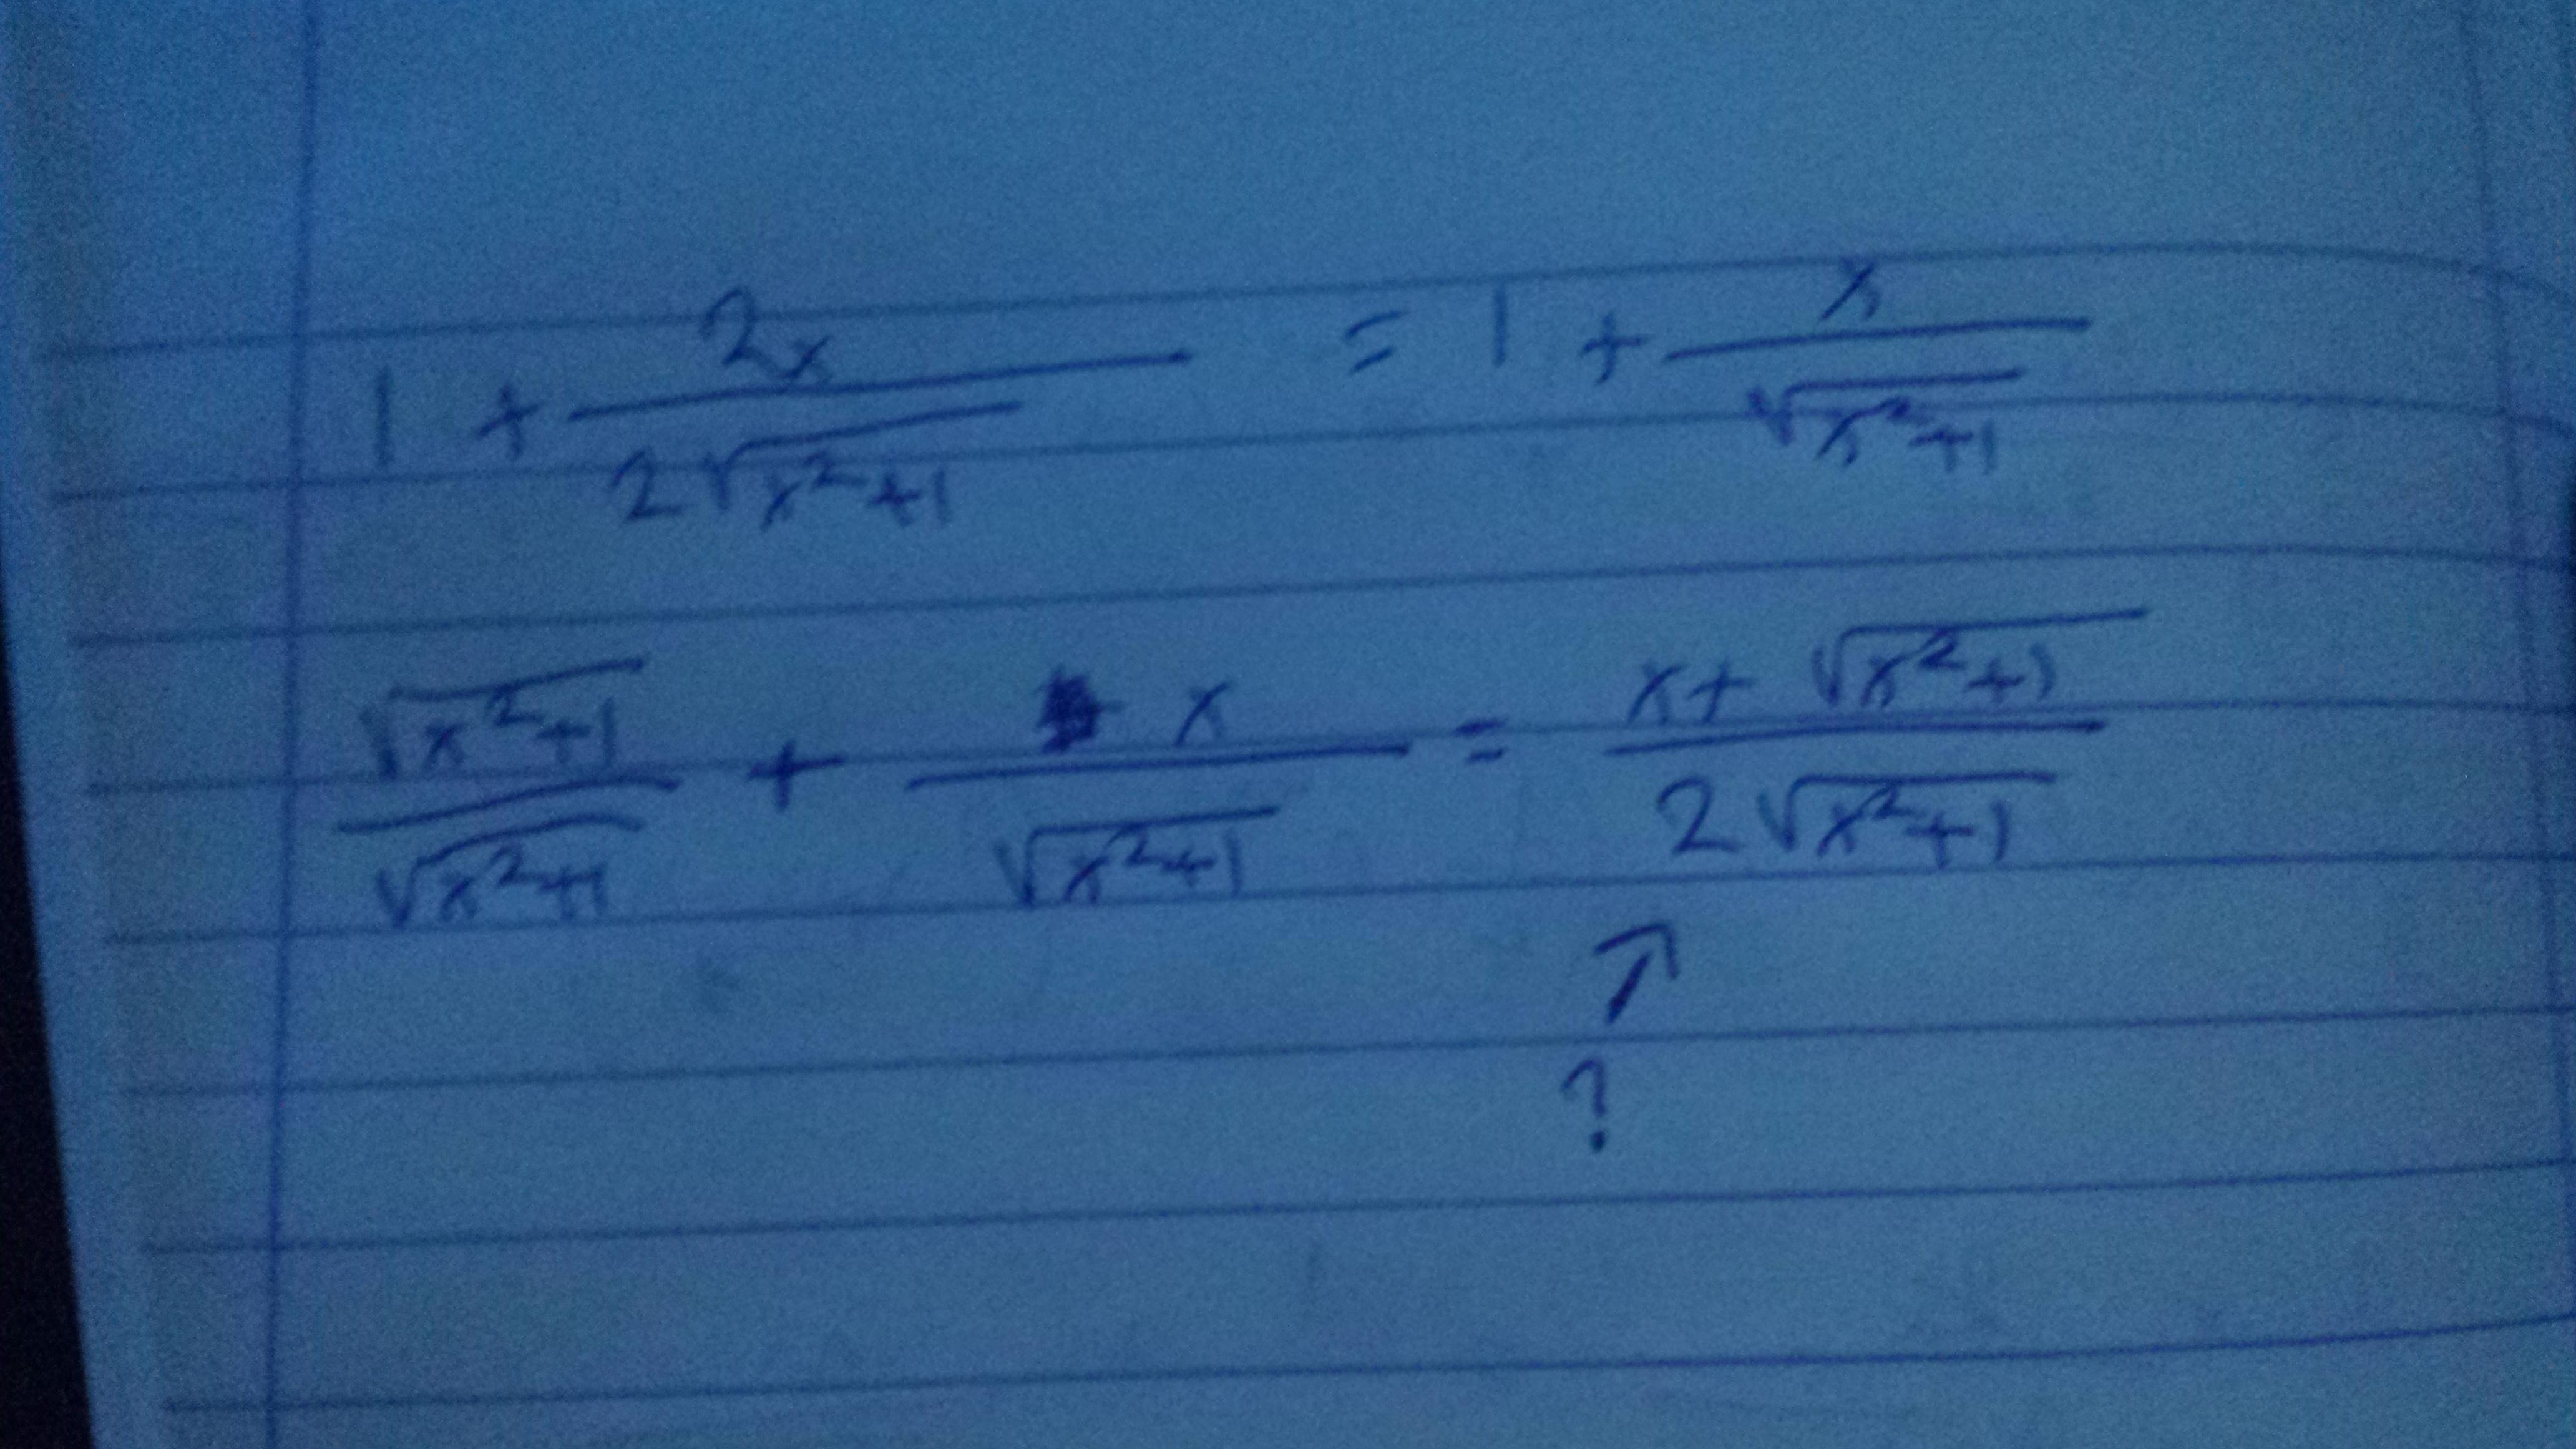 1 + 2x / 2√(x²+1) = 1 + x / √(x²+1)
√(x²+1) / √(x²+1) + x / √(x²+1) = x + √(x²+1) / 2√(x²+1)
↗
?